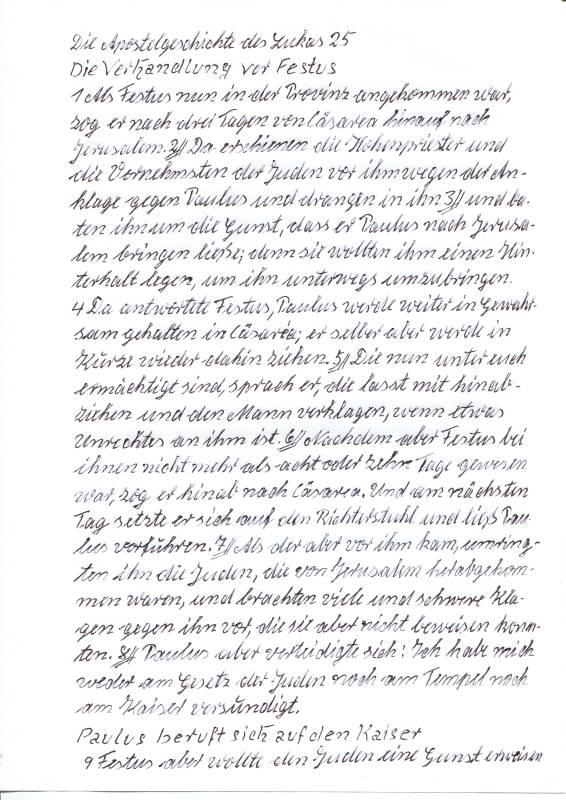 Die Apostelgeschichte des Lukas 25
Die Verhandlung vor Festus
1 Als Festus nun in der Provinz angekommen war,
zog er nach drei Tagen von Cäsarea hinauf nach
Jerusalem. 2// Da erschienen die Hohenpriester und
die Vornehmsten der Juden vor ihm wegen der An-
klage gegen Paulus und drangen in ihn 3// und ba-
ten ihn um die Gunst, dass er Paulus nach Jerusa-
lem bringen ließe; denn sie wollten ihm einen Hin-
terhalt legen, um ihn unterwegs umzubringen.
4 Da antwortete Festus, Paulus werde weiter in Gewahr-
sam gehalten in Cäsarea; er selber aber werde in
Kürze wieder dahin ziehen. 5// Die nun unter euch
ermächtigt sind, sprach er, die lasst mit hinab-
ziehen und den Mann verklagen, wenn etwas
Unrechtes an ihm ist. 6// Nachdem aber Festus bei
ihnen nicht mehr als acht oder zehn Tage gewesen
war, zog er hinab nach Cäsarea. Und am nächsten
Tag setzte er sich auf den Richterstuhl und ließ Pau-
lus vorführen. 7// Als der aber vor ihm kam, umring-
ten ihn die Juden, die von Jerusalem herabgekom-
men waren, und brachten viele und schwere Kla-
gen gegen ihn vor, die sie aber nicht beweisen konn-
ten. 8// Paulus aber verteidigte sich: Ich habe mich
weder am Gesetz der Juden noch am Tempel noch
am Kaiser versündigt.
Paulus beruft sich auf den Kaiser
9 Festus aber wollte den Juden eine Gunst erweisen